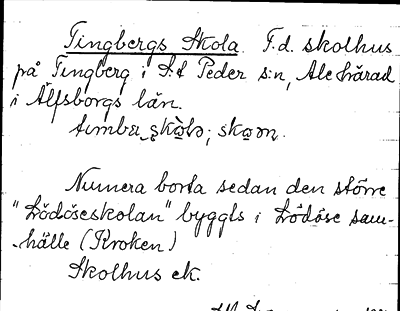 Tingbergs Skola. F.d. skolhus
på Tingberg i S:t Peder s:n, Ale härad
i Älfsborgs län.
skola; skoən.
Numera borta sedan den större
"Lödöseskolan" byggts i Lödöse sam-
hälle (Kroken)
Skolhus ek.